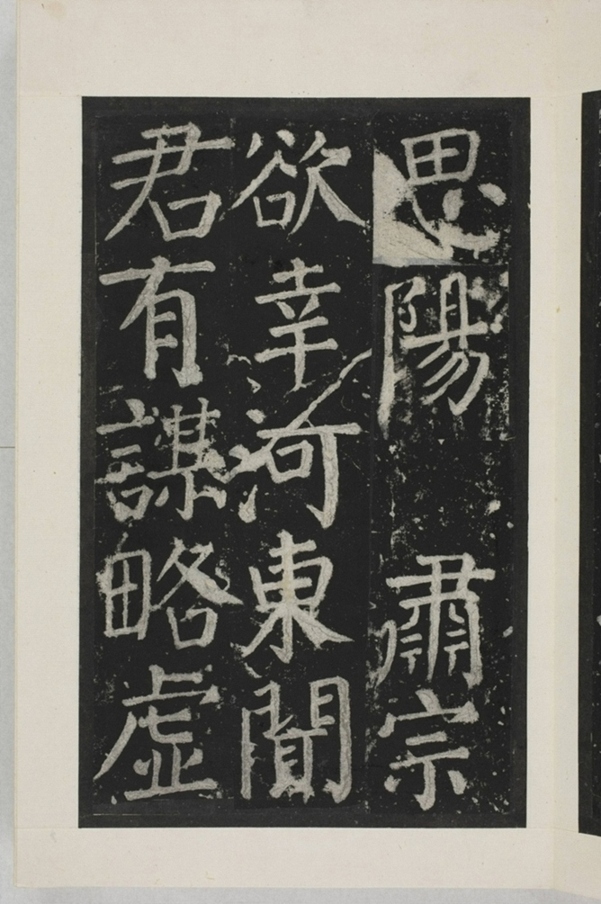 思陽 肅宗
欲幸河東聞
君有謀略虚